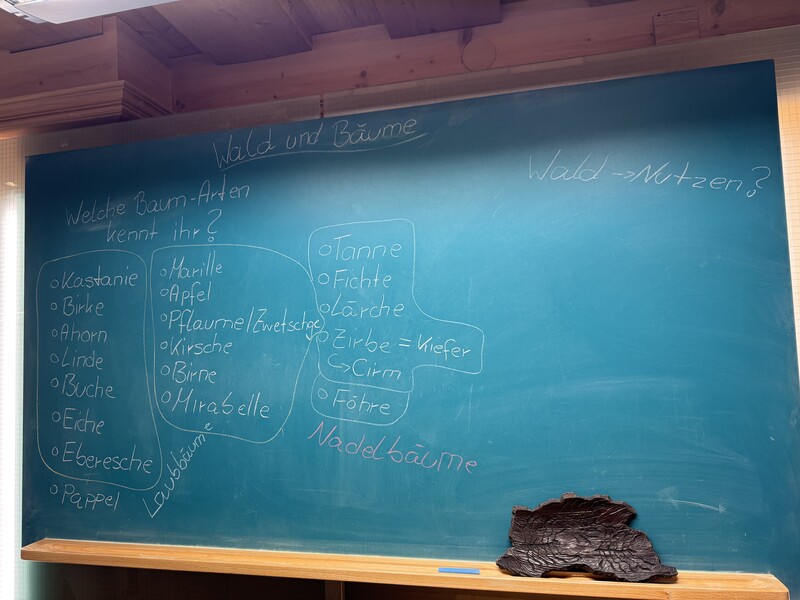 Wald und Bäume
Wald → Nutzen?
Welche Baum-Arten
kennt ihr?
Kastanie
Birke
Ahorn
Linde
Buche
Eiche
Eberesche
Pappel
Marille
Apfel
Pflaume/Zwetschge
Kirsche
Birne
Mirabelle
Laubbäume
Tanne
Fichte
Lärche
Zirbe = Kiefer
↳ Cirm
Föhre
Nadelbäume